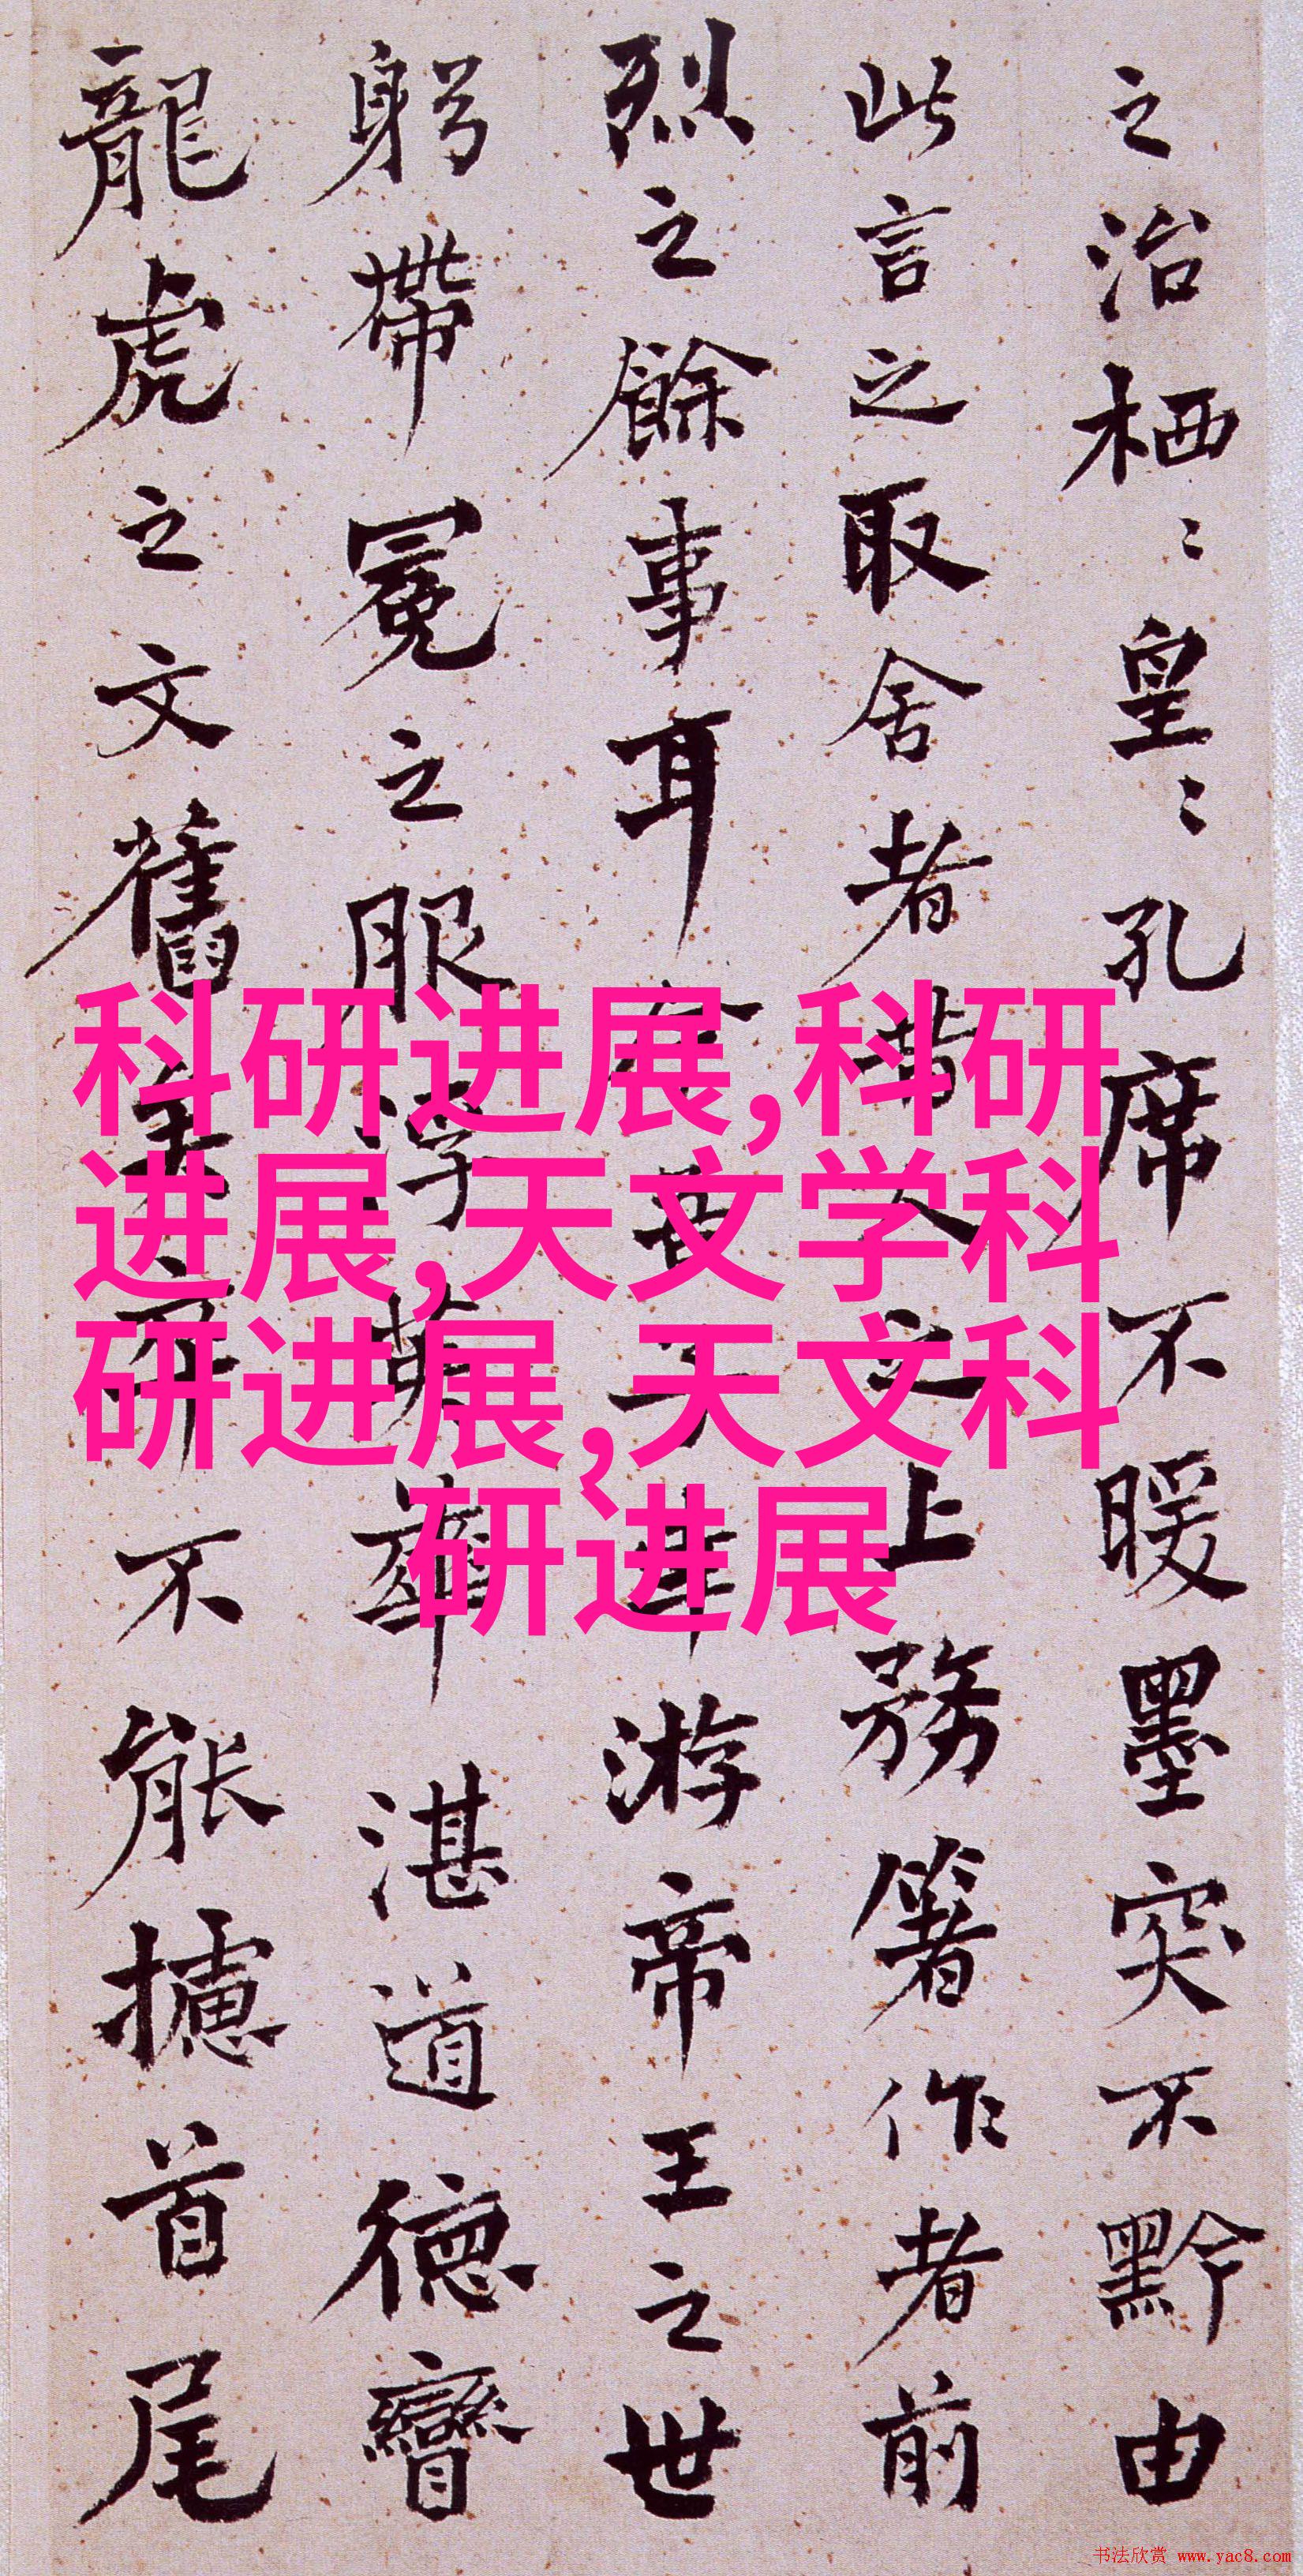 之治栖〻皇〻孔席不暖墨突不黔由
此言之取舍者
上務箸作者前
烈之餘事耳
游帝王之世
躬帶冕之服浮英華湛道德矕
龍虎之文舊矣
不能攄首尾
科研进展,科研
进展,天文学科
研进展,天文科
研进展
书法欣赏 www.yac8.com